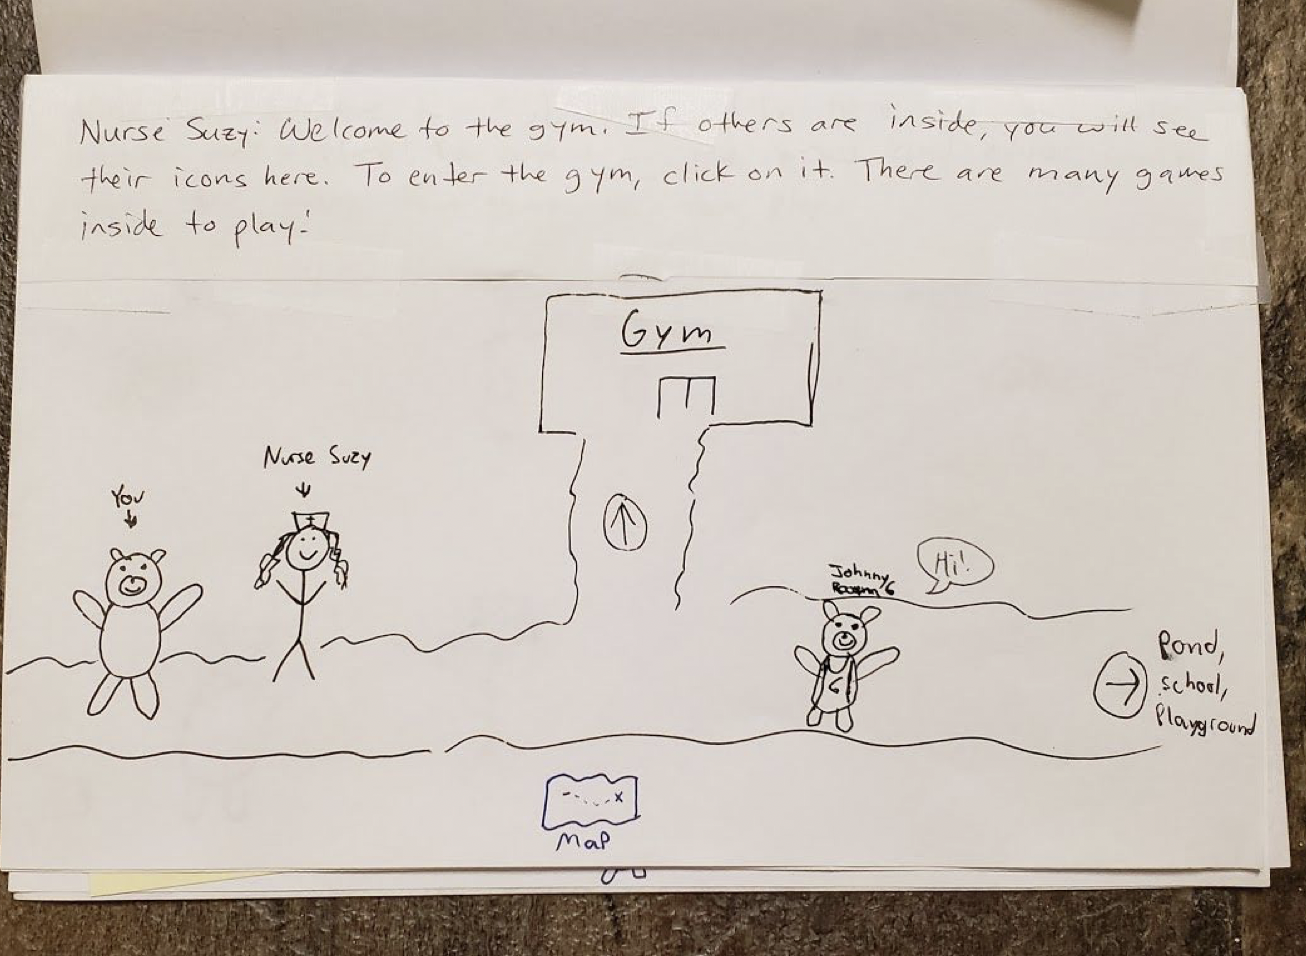 Nurse Suzy: Welcome to the gym. If others are inside, you will see
their icons here. To enter the gym, click on it. There are many games
inside to play!
Gym
Nurse Suzy
You
Hi!
Johnny
6
Pond,
school,
Playground
6
Map